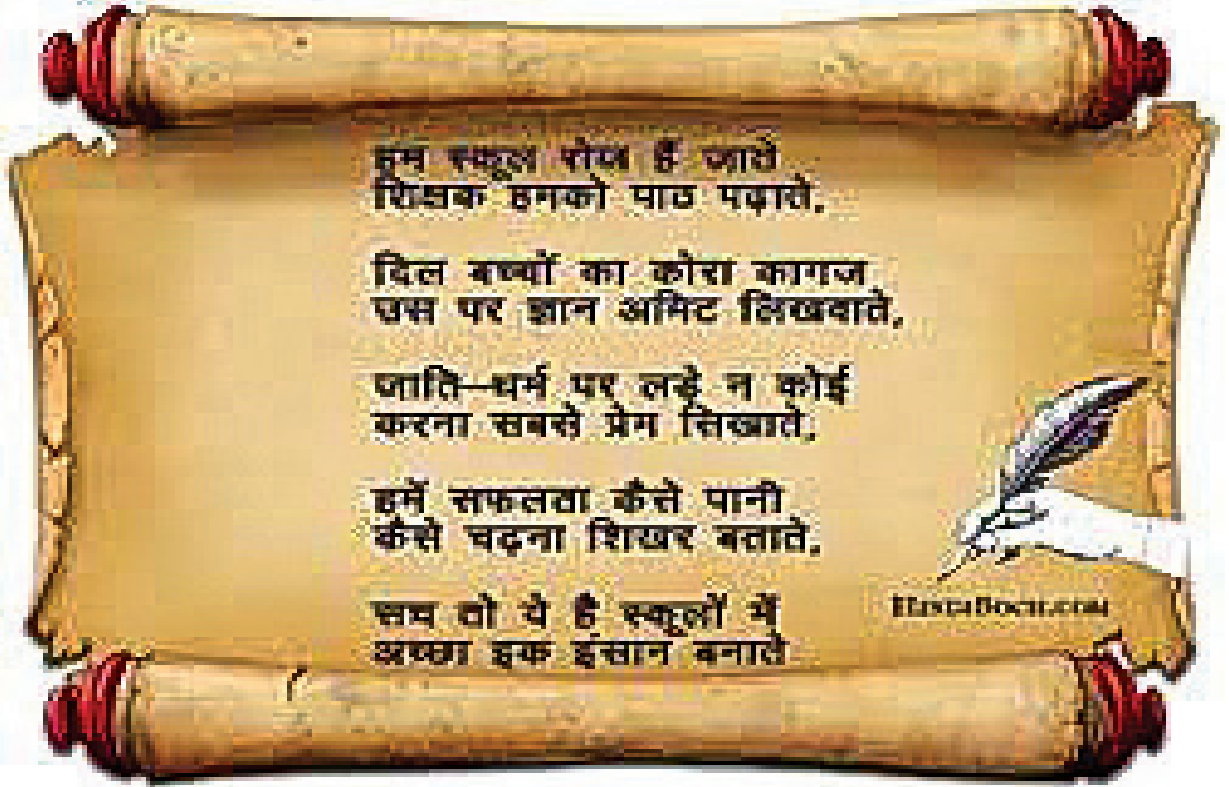 हम स्कूल रोज हैं जाते
शिक्षक हमको पाठ पढ़ाते,
दिल बच्चों का कोरा कागज
उस पर ज्ञान अमिट लिखवाते,
जाति-धर्म पर लड़े न कोई
करना सबसे प्रेम सिखाते,
हमें सफलता कैसे पानी
कैसे चढ़ना शिखर बताते,
सच तो ये है स्कूलों में
अच्छा इक इंसान बनाते